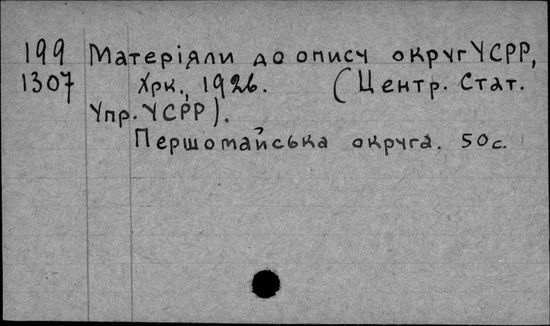 199 Матеріяли до опису округ УСРР,
1307 Хрк., 1926. (Центр. Стат.
Упр. УСРР).
Першомайська округа. 50с.